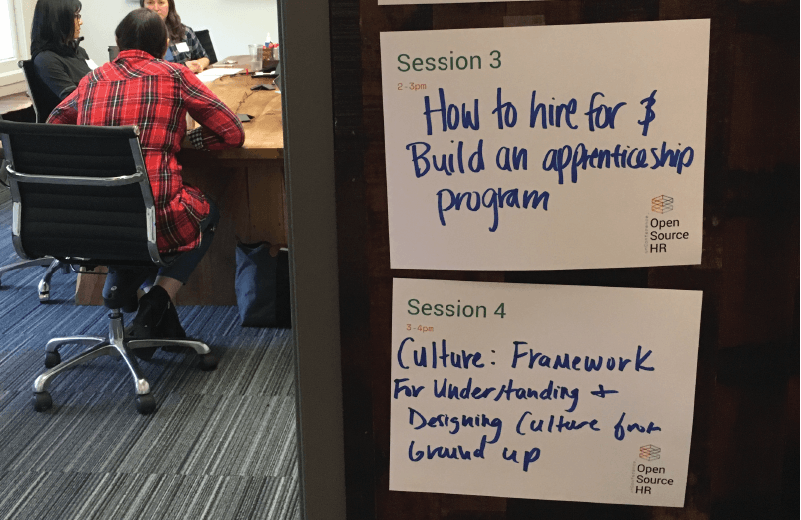 Session 3
2-3pm
How to hire for &
Build an apprenticeship
program
Open
Source
HR
Session 4
3-4pm
Culture: Framework
For Understanding +
Designing Culture from
Ground up
Open
Source
HR